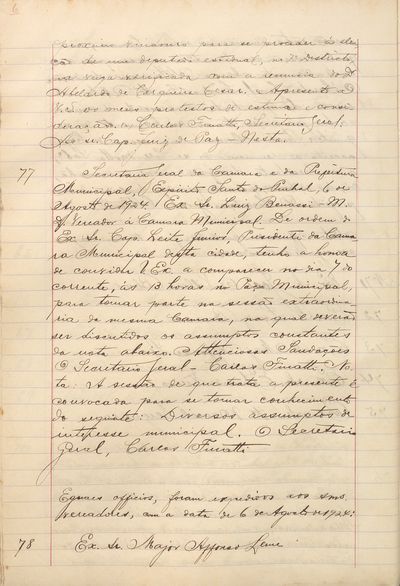 6
proximo vindouro para se proceder á elei-
ção de um deputado estadual, no 7º districto,
na vaga verificada com a renuncia do Dr
de Cerqueira Cesar. Apresento a
V.S. os meus protestos de estima e consi-
deração. O Carlos Finatti, Secretario Geral.
Ao sr. Cap. Juiz de Paz - Nesta.
77
Secretaria Geral da Camara e da Prefeitura
Municipal. Espirito Santo do Pinhal, 6 de
Agosto de 1924. Ex. Sr. Luiz Benassi - M.
D. Vereador á Camara Municipal. De ordem do
Ex. Sr. Cap. Leite Junior, Presidente da Cama-
ra Municipal desta cidade, tenho a honra
de convidar V. Ex. a comparecer no dia 7 do
corrente, ás 13 horas no Paço Municipal,
para tomar parte na sessão extraordina-
ria da mesma Camara, na qual deverão
ser discutidos os assumptos constantes
da nota abaixo. Attenciosas Saudações
O Secretario Geral - Carlos Finatti. No-
ta: A sessão de que trata a presente é
convocada para se tomar conhecimento
do seguinte: Diversos assumptos de
interesse municipal. O Secretario
Geral, Carlos Finatti
Eguaes officios, foram expedidos aos snrs.
vereadores, com a data de 6 de Agosto de 1924:
78
Ex. Sr. Major Affonso Leme